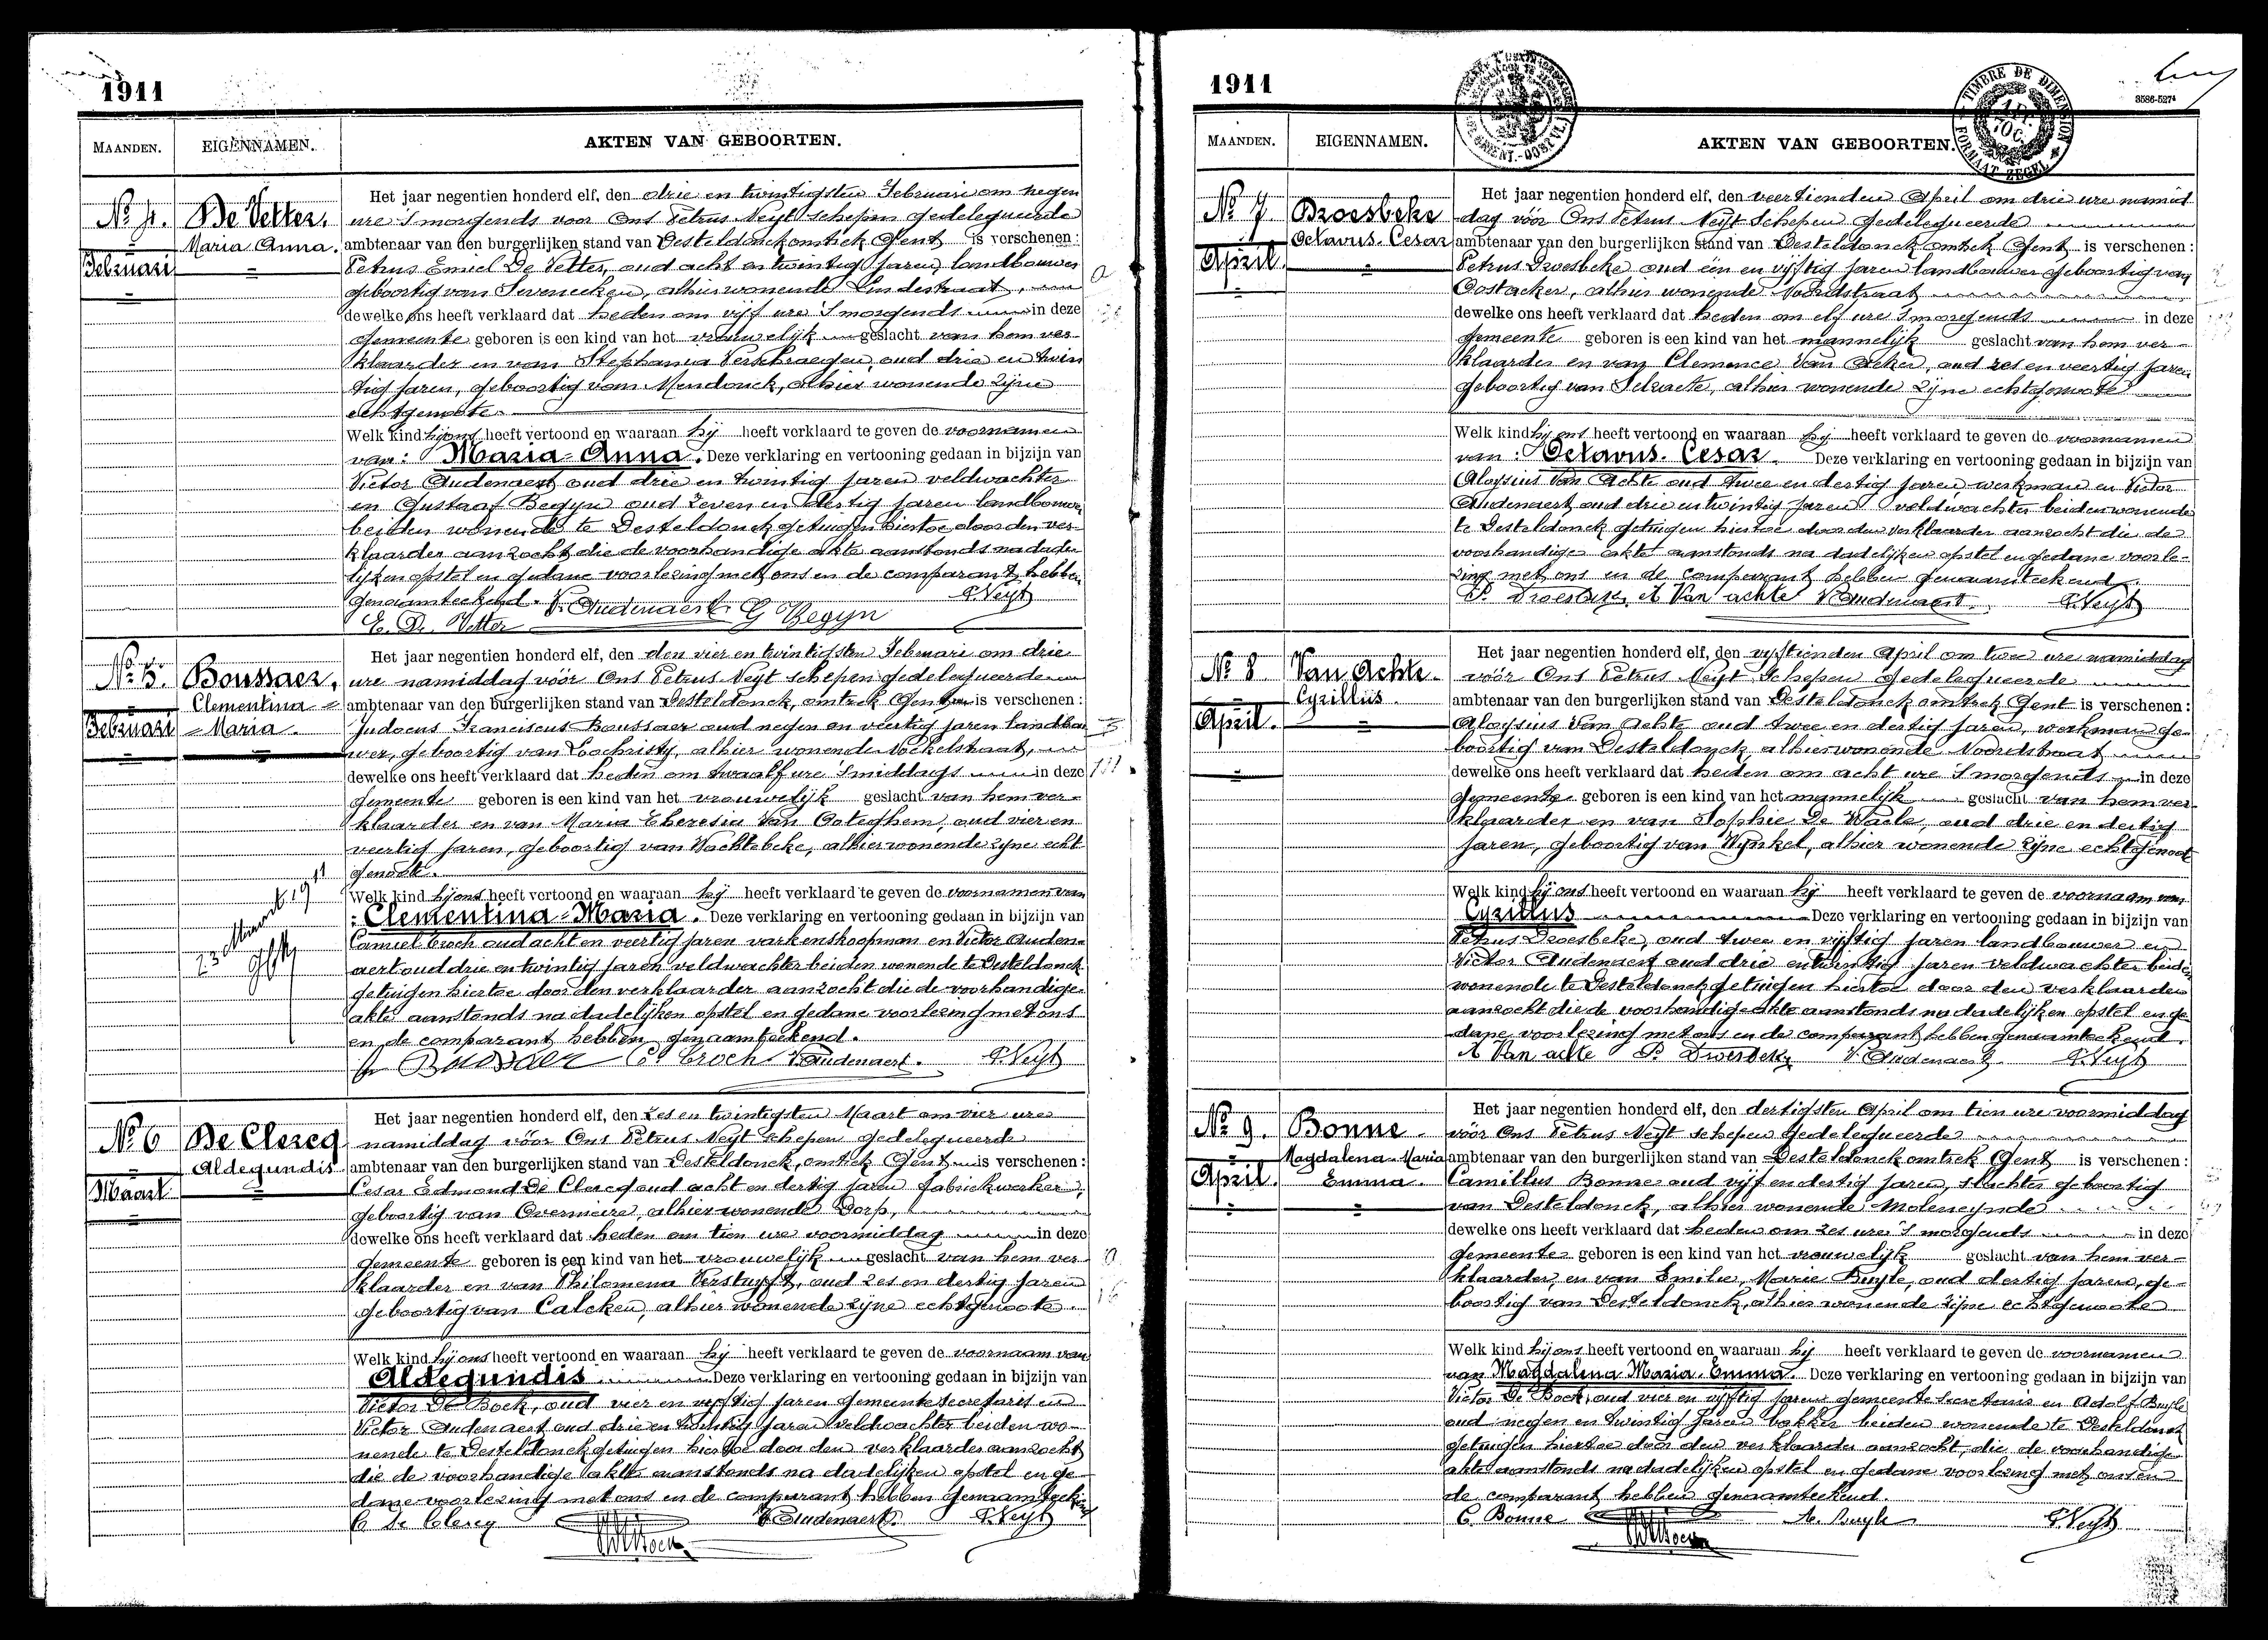 1911
MAANDEN. EIGENNAMEN. AKTEN VAN GEBOORTEN.
No 4. De Vetter,
Maria Anna.
Februari
Het jaar negentien honderd elf, den drie en twintigsten Februari om negen
ure 's morgends voor Ons Petrus Neyt schepen gedelegueerde
ambtenaar van den burgerlijken stand van Desteldonck omtrek Gent is verschenen:
Petrus Emiel De Vetter, oud acht en twintig jaren, landbouwer
geboortig van Seveneeken, alhier wonende Lindestraat,
dewelke ons heeft verklaard dat heden om vijf ure 's morgends in deze
gemeente geboren is een kind van het vrouwelijk geslacht van hem ver-
klaarder en van Stephania Verschraegen, oud drie en twin
tig jaren, geboortig van Mendonck, alhier wonende zijne
echtgenoote.
Welk kind hij ons heeft vertoond en waaraan hij heeft verklaard te geven de voornamen
van: Maria-Anna. Deze verklaring en vertooning gedaan in bijzijn van
Victor Audenaert oud drie en twintig jaren veldwachter
en Gustaaf Begyn oud zeven en dertig jaren landbouwer
beiden wonende te Desteldonck getuigen hiertoe door den ver-
klaarder aanzocht die de voorhandige akte aanstonds na dade
lijken opstel en gedane voorlezing met ons en de comparant hebben
genaamteekend. V. Audenaert G Begyn P. Neyt
E. De Vetter
No 5. Boussaer,
Clementina-
Maria.
Februari
Het jaar negentien honderd elf, den den vier en twintigsten Februari om drie
ure namiddag vóór Ons Petrus Neyt schepen gedelegueerde
ambtenaar van den burgerlijken stand van Desteldonck, omtrek Gent is verschenen:
Judocus Franciscus Boussaer oud negen en veertig jaren landbou
wer, geboortig van Loochristy, alhier wonende Nockelstraat,
dewelke ons heeft verklaard dat heden om twaalf ure 's middags in deze
gemeente geboren is een kind van het vrouwelijk geslacht van hem ver-
klaarder en van Maria Theresia Van Ooteghem, oud vier en
veertig jaren, geboortig van Wachtebeke, alhier wonende zijne echt
genoote.
23 Maart 1911
Welk kind hij ons heeft vertoond en waaraan hij heeft verklaard te geven de voornamen van
: Clementina-Maria. Deze verklaring en vertooning gedaan in bijzijn van
Camiel Croch oud acht en veertig jaren varkenskoopman en Victor Auden-
aert oud drie en twintig jaren veldwachter beiden wonende te Desteldonck
getuigen hiertoe door den verklaarder aanzocht die de voorhandige
akte aanstonds na dadelijken opstel en gedane voorlezing met ons
en de comparant hebben genaamteekend.
Boussaer C. Croch V. Audenaert. P. Neyt
No 6 De Clercq
Aldegundis
Maart
Het jaar negentien honderd elf, den zes en twintigsten Maart om vier ure
namiddag vóór Ons Petrus Neyt schepen gedelegueerde
ambtenaar van den burgerlijken stand van Desteldonck, omtrek Gent is verschenen:
Cesar Edmond De Clercq oud acht en dertig jaren fabriekwerker,
geboortig van Overmeire, alhier wonende Dorp,
dewelke ons heeft verklaard dat heden om tien ure voormiddag in deze
gemeente geboren is een kind van het vrouwelijk geslacht van hem ver
klaarder en van Philomena Verstuyft, oud zes en dertig jaren
geboortig van Calcken, alhier wonende zijne echtgenoote.
Welk kind hij ons heeft vertoond en waaraan hij heeft verklaard te geven de voornaam van
Aldegundis Deze verklaring en vertooning gedaan in bijzijn van
Victor De Bock, oud vier en vijftig jaren gemeente secretaris en
Victor Audenaert oud drie en twintig jaren veldwachter beiden wo-
nende te Desteldonck getuigen hiertoe door den verklaarder aanzocht
die de voorhandige akte aanstonds na dadelijken opstel en ge-
dane voorlezing met ons en de comparant hebben genaamteekend
C De Clercq V Audenaert. P. Neyt
1911
3586-5274
TIMBRE DE DIMENSION
FORMAAT ZEGEL
MAANDEN. EIGENNAMEN. AKTEN VAN GEBOORTEN.
No 7 Droesbeke
Octavus-Cesar
April.
Het jaar negentien honderd elf, den veertienden April om drie ure namid
dag vóór Ons Petrus Neyt Schepen gedelegueerde
ambtenaar van den burgerlijken stand van Desteldonck omtrek Gent is verschenen:
Petrus Droesbeke oud één en vijftig jaren landbouwer geboortig van
Oostacker, alhier wonende Noordstraat
dewelke ons heeft verklaard dat heden om elf ure 's morgends in deze
gemeente geboren is een kind van het mannelijk geslacht van hem ver-
klaarder en van Clemence Van Acker, oud zes en veertig jaren
geboortig van Selzaete, alhier wonende zijne echtgenoote
Welk kind hij ons heeft vertoond en waaraan hij heeft verklaard te geven de voornamen
van: Octavus-Cesar. Deze verklaring en vertooning gedaan in bijzijn van
Aloysius Van Achte oud twee en dertig jaren, werkman en Victor
Audenaert oud drie en twintig jaren veldwachter beiden wonende
te Desteldonck getuigen hiertoe door den verklaarder aanzocht die de
voorhandige akte aanstonds na dadelijken opstel en gedane voorle-
zing met ons en de comparant hebben genaamteekend.
P. Droesbeke A Van achte V Audenaert. P. Neyt
No 8 Van Achte.
Cyrillus.
April.
Het jaar negentien honderd elf, den vijftienden April om twee ure namiddag
vóór Ons Petrus Neyt Schepen gedelegueerde
ambtenaar van den burgerlijken stand van Desteldonck omtrek Gent is verschenen:
Aloysius Van Achte oud twee en dertig jaren, werkman ge-
boortig van Desteldonck alhier wonende Noordstraat
dewelke ons heeft verklaard dat heden om acht ure 's morgends in deze
gemeente geboren is een kind van het mannelijk geslacht van hem ver
klaarder en van Sophie De Waele, oud drie en dertig
jaren, geboortig van Wynkel, alhier wonende zijne echtgenoot
Welk kind hij ons heeft vertoond en waaraan hij heeft verklaard te geven de voornaam van
Cyrillus Deze verklaring en vertooning gedaan in bijzijn van
Petrus Droesbeke, oud twee en vijftig jaren landbouwer en
Victor Audenaert oud drie en twintig jaren veldwachter beiden
wonende te Desteldonck getuigen hiertoe door den verklaarder
aanzocht die de voorhandige akte aanstonds na dadelijken opstel en ge
dane voorlezing met ons en de comparant hebben genaamteekend.
A Van achte P. Droesbeke V. Audenaert. P. Neyt
No 9. Bonne.
Magdalena-Maria
Emma.
April.
Het jaar negentien honderd elf, den dertigsten April om tien ure voormiddag
vóór Ons Petrus Neyt schepen gedelegueerde
ambtenaar van den burgerlijken stand van Desteldonck omtrek Gent is verschenen:
Camillus Bonne oud vijf en dertig jaren, slachter geboortig
van Desteldonck, alhier wonende Moleneynde
dewelke ons heeft verklaard dat heden om zes ure 's morgends in deze
gemeente geboren is een kind van het vrouwelijk geslacht van hem ver-
klaarder, en van Emilie, Marie Buyle, oud dertig jaren, ge-
boortig van Desteldonck, alhier wonende zijne echtgenoote
Welk kind hij ons heeft vertoond en waaraan hij heeft verklaard te geven de voornamen
van Magdalena Maria Emma. Deze verklaring en vertooning gedaan in bijzijn van
Victor De Bock, oud vier en vijftig jaren gemeente secretaris en Adolf Buyle
oud negen en twintig jaren bakker beiden wonende te Desteldonck
getuigen hiertoe door den verklaarder aanzocht, die de voorhandige
akte aanstonds na dadelijken opstel en gedane voorlezing met ons en
de comparant hebben genaamteekend.
C. Bonne A. Buyle P. Neyt